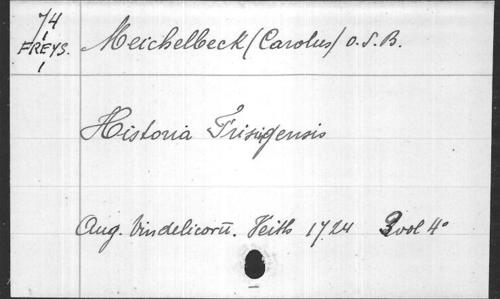 74
FREYS.
1
Meichelbeck (Carolus) O.S.B.
Historia Frisigensis
Aug. Vindelicorū. Veith 1724 2 vol 4°